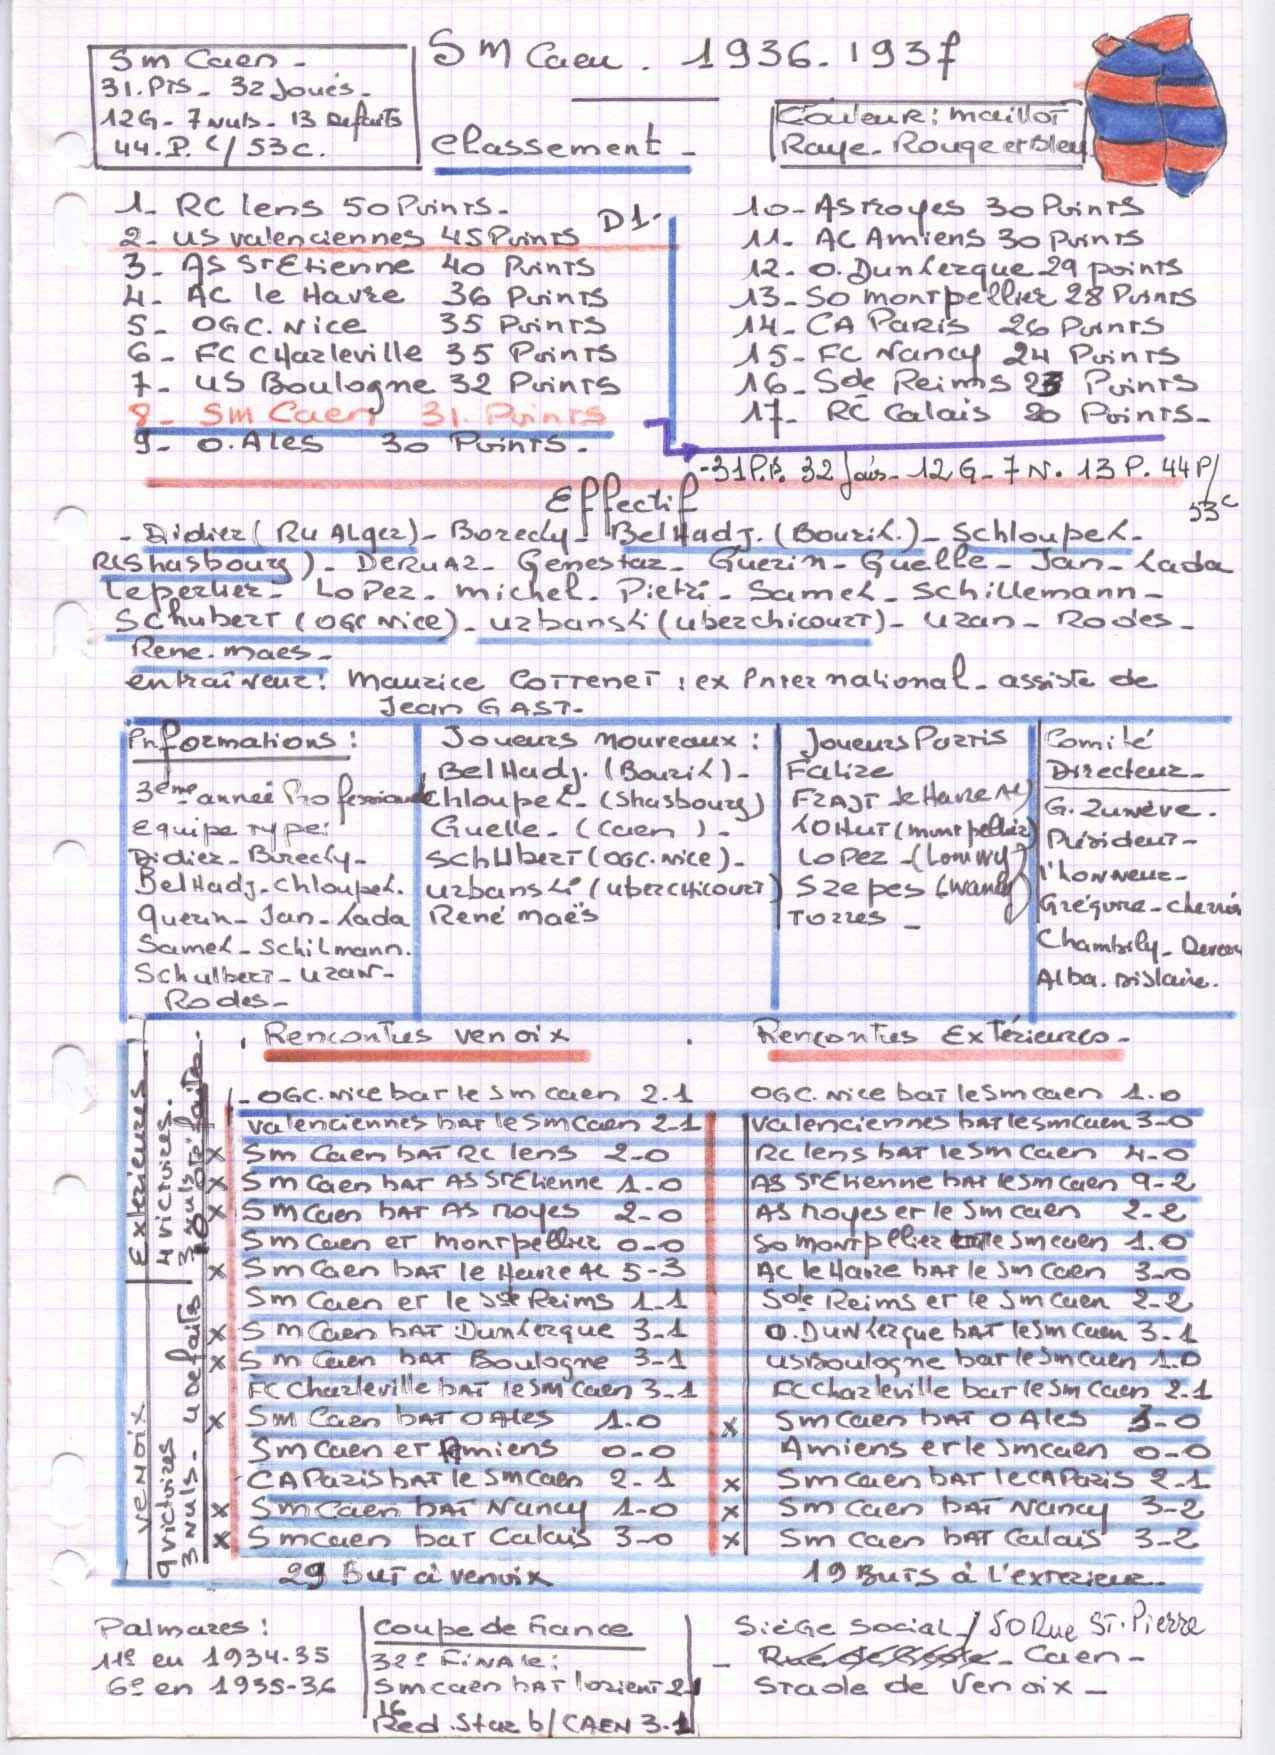 Sm Caen -
31. Pts - 32 Joués -
12 G - 7 Nuls - 13 Defaits
44. P. c/ 53 c.
Sm Caen . 1936. 1937
Classement -
Couleur: maillot
Raye - Rouge et Bleu
1- RC lens 50 Points -
2- US valenciennes 45 Points
3- AS St Etienne 40 Points
4- AC le Havre 36 Points
5- OGC. Nice 35 Points
6- FC Charleville 35 Points
7- US Boulogne 32 Points
8- Sm Caen 31. Points
9- O. Ales 30 Points -
D1 -
10- AS Troyes 30 Points
11- AC Amiens 30 Points
12- O. Dunkerque 29 points
13- SO montpellier 28 Points
14- CA Paris 26 Points
15- FC Nancy 24 Points
16- Sde Reims 23 Points
17- RC Calais 20 Points -
- 31 P.P. 32 Joués - 12 G - 7 N. 13 P. 44 P/
53 c
Effectif
- Didier (Ru Alger) - Borecky - BelHadj. (Bourik.) - Schloupek -
RC Strasbourg) - Deruaz - Genestaz - Guerin - Guelle - Jan - Lada
Leperlier - Lopez - michel - Pietri - Samek - Schillemann -
Schubert (OGC Nice) - urbanski (uberchicourt) - uzan - Rodes -
Rene. maes -
entraîneur: Maurice Cottenet : ex International - assiste de
Jean GAST -
Informations :
3eme année Professionnelle
Equipe Type:
Didier - Borecky -
BelHadj - Chloupek.
Querin - Jan - Lada
Samek - Schilmann.
Schulbert - uzan -
Rodes -
Joueurs nouveaux :
BelHadj. (Bourik) -
Chloupek - (Strasbourg)
Guelle - (Caen) -
Schubert (OGC. Nice) -
urbanski (uberchicourt)
René Maës
Joueurs Partis
Falize
Frajt le Havre AC)
Lohut (montpellier)
Lopez - (Longwy)
Szepes (Nancy)
Torres -
Comité
Directeur -
G. Zuneve.
Président -
l'honneur -
Grégoire -
Chambily -
Alba. Dislaire.
Rencontres venoix
Rencontres Extérieures -
- OGC. Nice bat le Sm caen 2.1
valenciennes bat le Sm Caen 2-1
x Sm Caen bat RC lens 2-0
x Sm Caen bat AS St Etienne 1-0
x Sm Caen bat AS Troyes 2-0
Sm Caen et montpellier 0-0
x Sm Caen bat le Havre AC 5-3
Sm Caen et le Sde Reims 1-1
x Sm Caen bat Dunkerque 3-1
x Sm Caen bat Boulogne 3-1
FC Charleville bat le Sm Caen 3-1
x Sm Caen bat O Ales 1-0
Sm Caen et Amiens 0-0
CA Paris bat le Sm Caen 2-1
x Sm Caen bat Nancy 1-0
x Sm caen bat Calais 3-0
29 But à venoix
OGC. Nice bat le Sm caen 1-0
valenciennes bat le Sm Caen 3-0
RC lens bat le Sm Caen 4-0
AS St Etienne bat le Sm Caen 9-2
AS Troyes et le Sm caen 2-2
SO montpellier le Sm caen 1.0
AC le Havre bat le Sm Caen 3-0
Sde Reims et le Sm Caen 2-2
O. Dunkerque bat le Sm Caen 3-1
US Boulogne bat le Sm caen 1.0
FC Charleville bat le Sm Caen 2-1
x Sm Caen bat O Ales 3-0
Amiens et le Sm caen 0-0
x Sm Caen bat le CA Paris 2-1
x Sm Caen bat Nancy 3-2
x Sm Caen bat Calais 3-2
19 Buts à l'exterieur -
Exterieures
4 victoires.
3 nuls
venoix
9 victoires
3 nuls - 4 defaits
Palmares :
11e en 1934-35
6e en 1935-36
Coupe de France
32e Finale:
Sm caen bat lorient 2-1
16
Red. Star b/ CAEN 3-1
Siège Social / 50 Rue St. Pierre
- Caen -
Stade de Venoix -